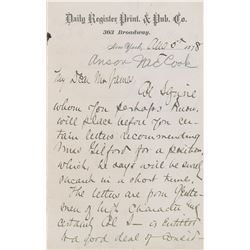 Daily Register Print. & Pub. Co.
303 Broadway.
New York, Feb 5th 1878
Anson McCook
My Dear Mr James
Col
whom you perhaps know,
will place before you cer-
tain letters recommending
Mrs Gilford for a position,
which, he says will be
vacant in a short time.
The letters are from gentle-
men of high character and
certainly Col S— is entitled
to a good deal of